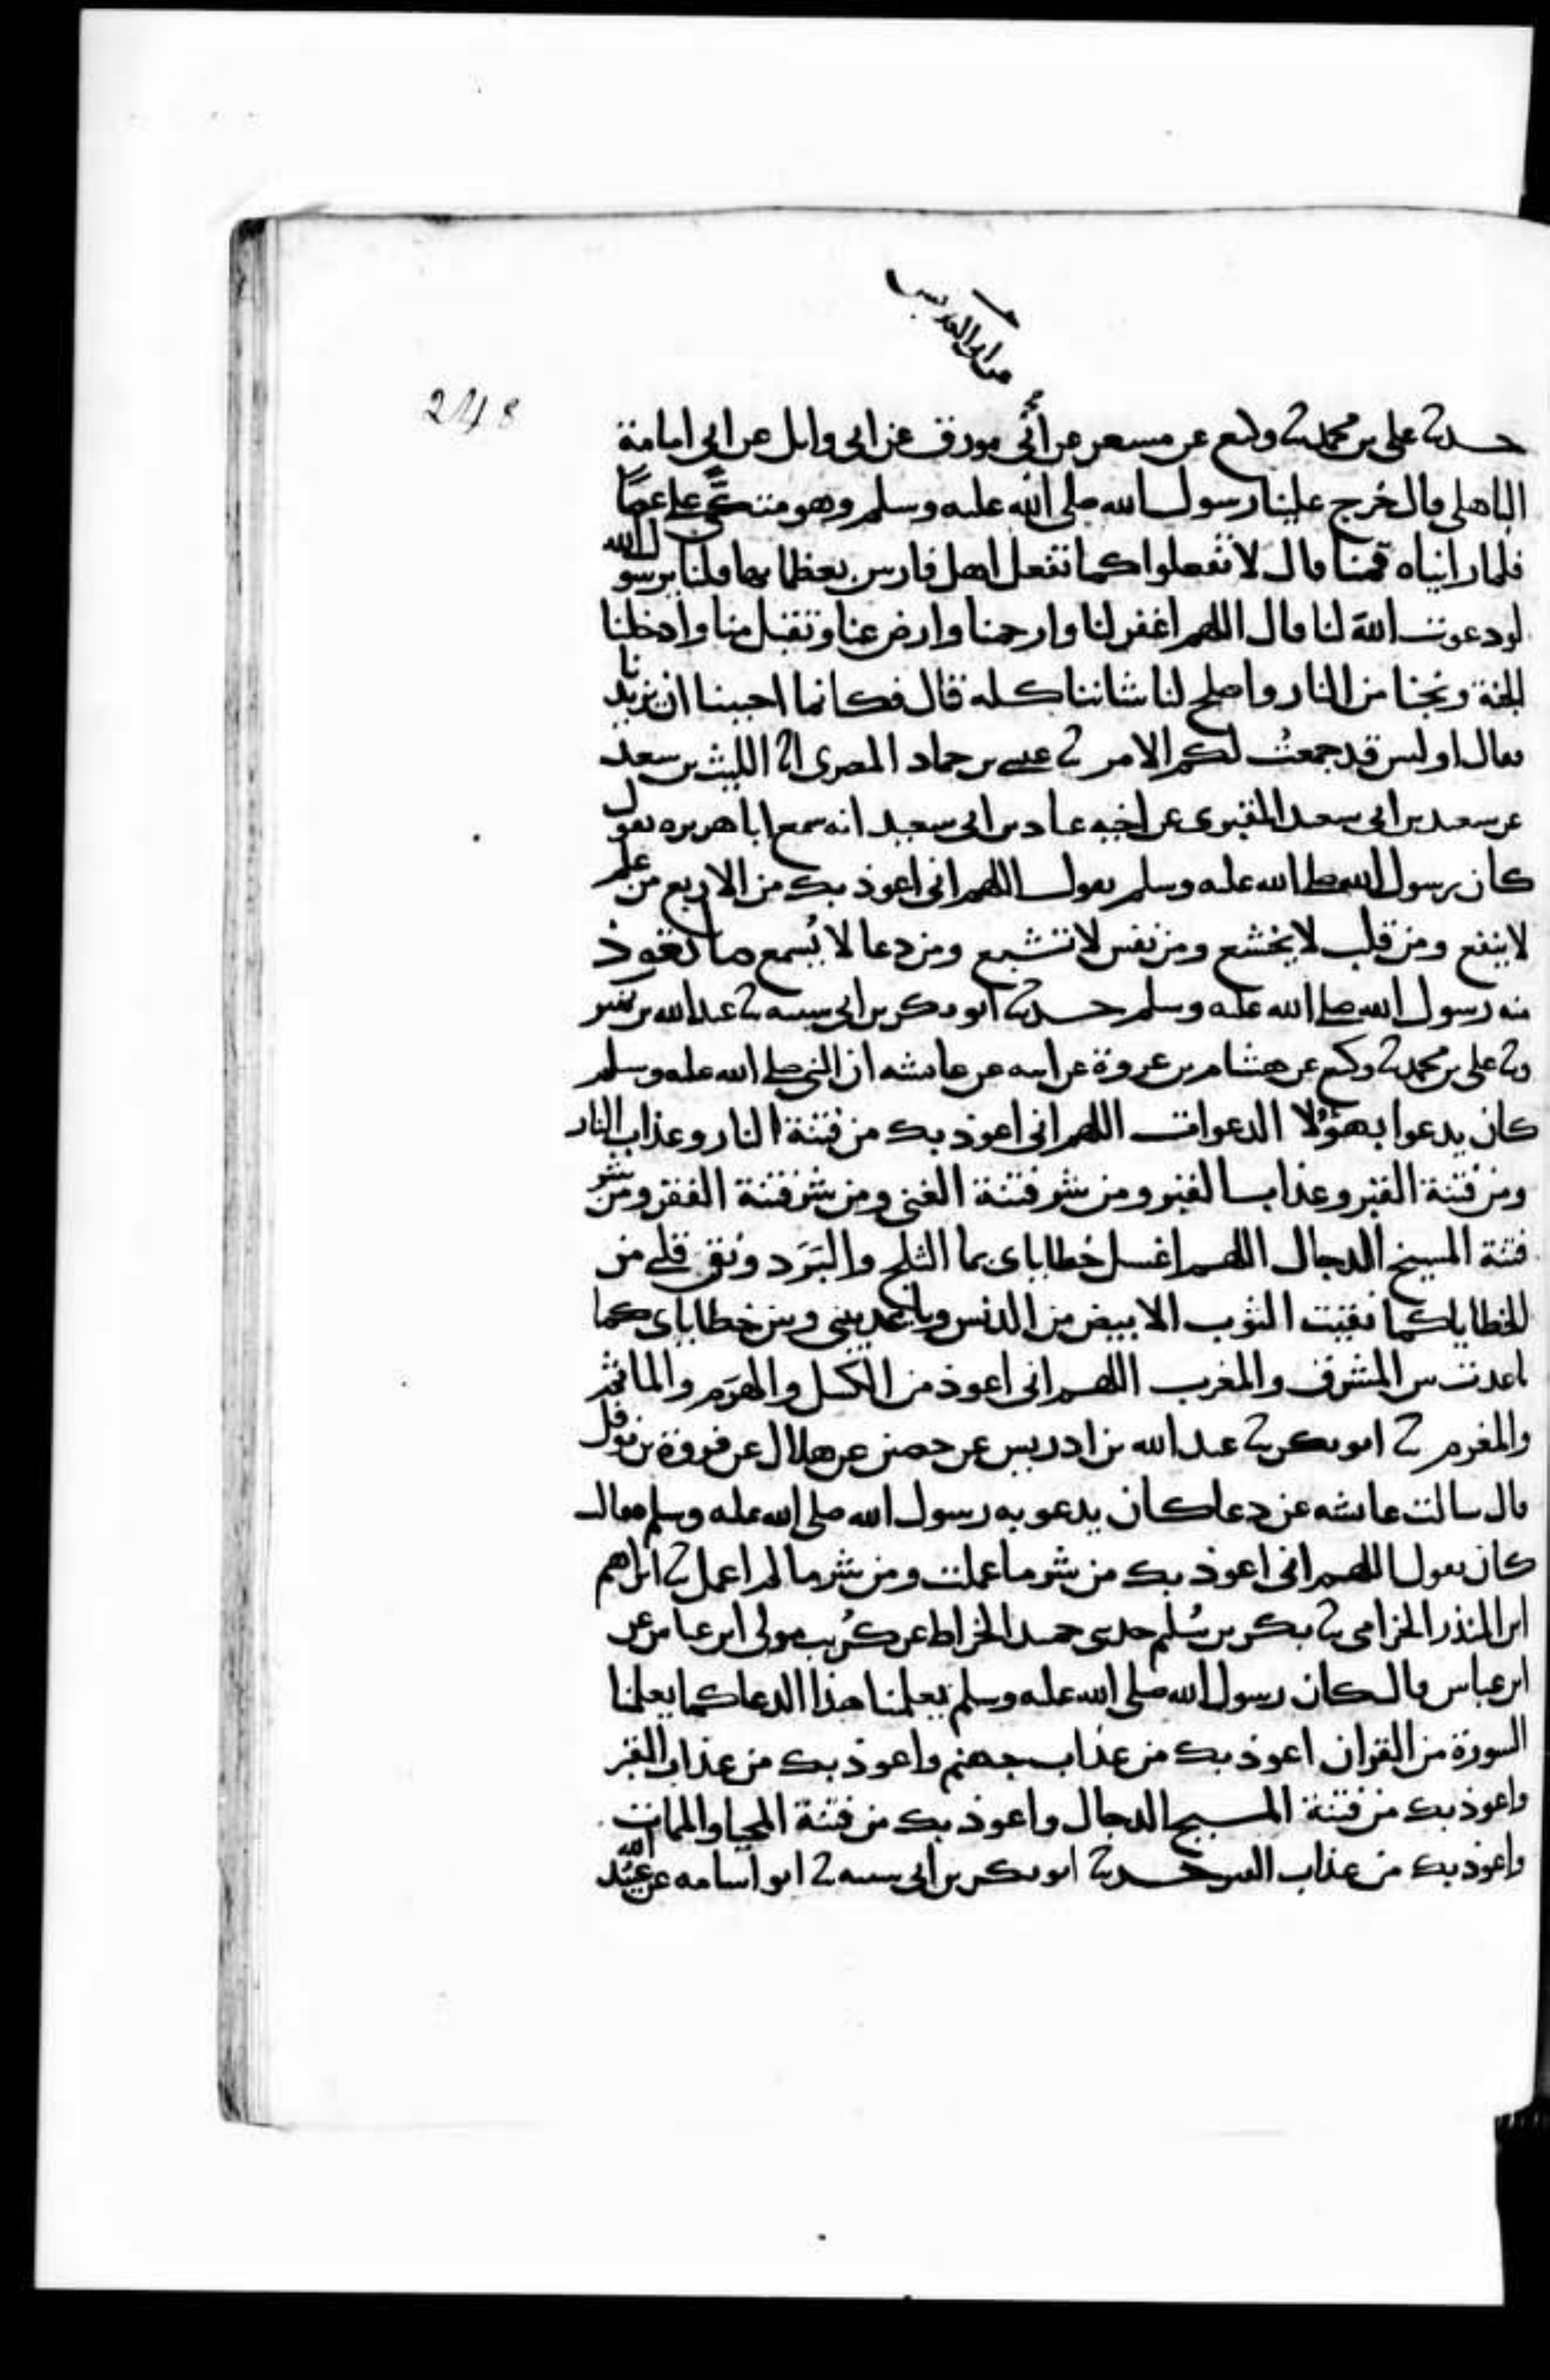 248
حدثنا على بن محمد ثنا وكيع عن مسعر عن ابى مورق عن ابى وايل عن ابى امامة
الباهلى قال خرج علينا رسول الله صلى الله عليه وسلم وهو متكئ على عصًا
فلما رايناه قمنا قال لا تفعلوا كما تفعل اهل فارس بعظمايها قلنا يرسول الله
لو دعوت اللهَ لنا قال اللهم اغفر لنا وارحمنا وارض عنا وتقبل منا وادخلنا
الجنة ونجنا من النار واصلح لنا شاننا كله قال فكانما احببنا ان يزيدنا
فقال اوليس قد جمعتُ لكم الامر ثنا عيسى بن حماد المصرى انا الليث بن سعد
عن سعيد بن ابى سعيد المقبرى عن اخيه عباد بن ابى سعيد انه سمع ابا هريره يقول
كان رسول الله صلى الله عليه وسلم يقول اللهم انى اعوذ بك من الاربع من علم
لا ينفع ومن قلب لا يخشع ومن نفس لا تشبع ومن دعا لا يُسمع ما تعوذ
منه رسول الله صلى الله عليه وسلم حدثنا ابو بكر بن ابى شيبه ثنا عبد الله بن نمير
وثنا على بن محمد ثنا وكيع عن هشام بن عروة عن ابيه عن عايشه ان النبى صلى الله عليه وسلم
كان يدعوا بهؤلا الدعوات اللهم انى اعوذ بك من فتنة النار وعذاب النار
ومن فتنة القبر وعذاب القبر ومن شر فتنة الغنى ومن شر فتنة الفقر ومن شر
فتنة المسيح الدجال اللهم اغسل خطاياى بما الثلج والبَرَد ونق قلبى من
الخطايا كما نقيت الثوب الابيض من الدنس وباعد بينى وبين خطاياى كما
باعدت بين المشرق والمغرب اللهم انى اعوذ من الكسل والهرَم والماثم
والمغرم ثنا ابو بكر ثنا عبد الله بن ادريس عن حصين عن هلال عن فروة بن نوفل
قال سالت عايشه عن دعا كان يدعو به رسول الله صلى الله عليه وسلم فقالت
كان يقول اللهم انى اعوذ بك من شر ما عملت ومن شر ما لم اعمل ثنا ابراهيم
ابن المنذر الحزامى ثنا بكر بن سُليم حدثنى حميد الخراط عن كُريب مولى ابن عباس عن
ابن عباس قال كان رسول الله صلى الله عليه وسلم يعلمنا هذا الدعا كما يعلمنا
السورة من القران اعوذ بك من عذاب جهنم واعوذ بك من عذاب القبر
واعوذ بك من فتنة المسيح الدجال واعوذ بك من فتنة المحيا والممات
واعوذ بك من عذاب القبر حدثنا ابو بكر بن ابى شيبه ثنا ابو اسامه عن عبيد الله